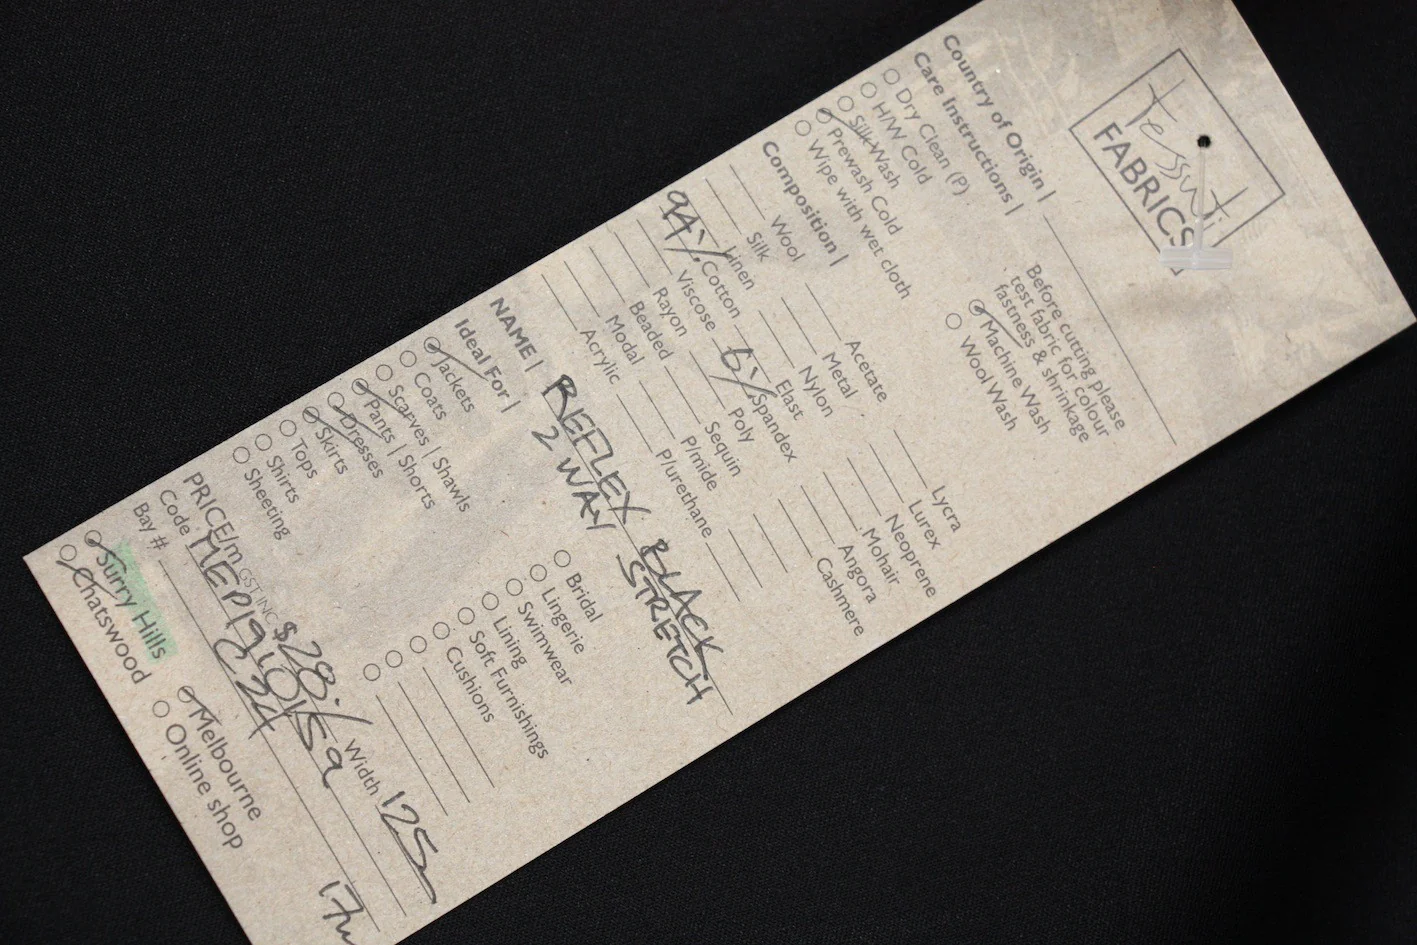 tessuti
FABRICS
Before cutting please
test fabric for colour
fastness & shrinkage
Country of Origin |
Care Instructions |
Dry Clean (P)
H/W Cold
Silk Wash
Prewash Cold
Wipe with wet cloth
Machine Wash
Wool Wash
Composition |
Wool Acetate Lycra
Silk Metal Lurex
Linen Nylon Neoprene
94% Cotton Elast Mohair
Viscose 6% Spandex Angora
Rayon Poly Cashmere
Beaded Sequin
Modal P/mide
Acrylic P/urethane
NAME | REFLEX BLACK
2 WAY STRETCH
Ideal For |
Jackets Bridal
Coats Lingerie
Scarves | Shawls Swimwear
Pants | Shorts Lining
Dresses Soft Furnishings
Skirts Cushions
Tops
Shirts
Sheeting
PRICE/m GST INC $28./ Width 125
Code
Bay # C24
Surry Hills Melbourne
Chatswood Online shop